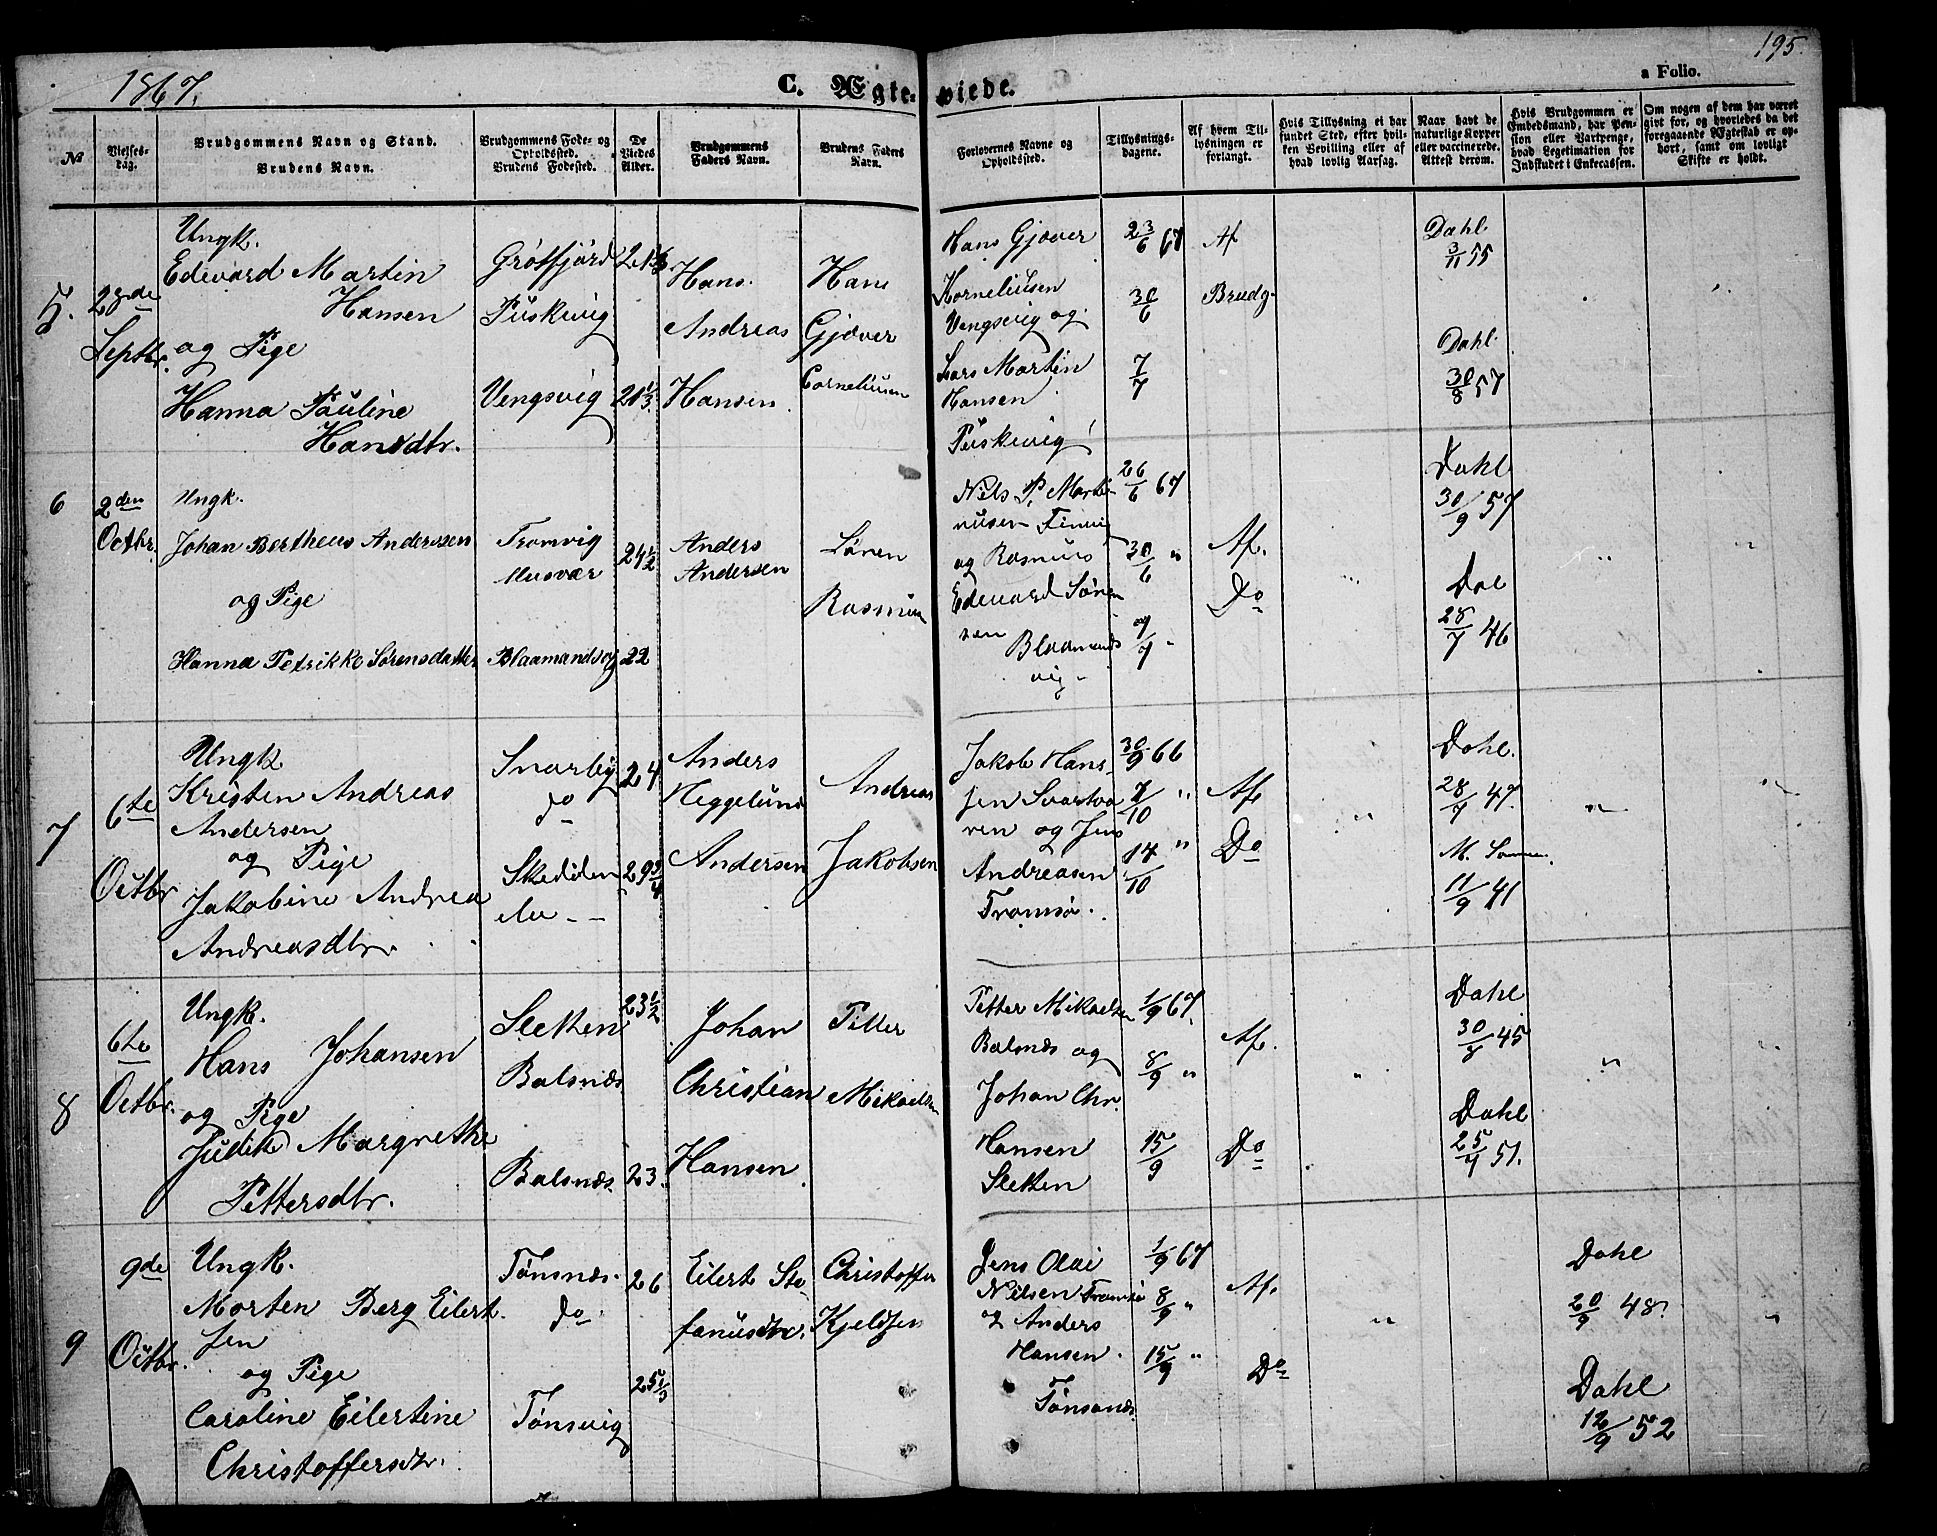 1867.
C. Ægteviede.
195.
a Folio.
No
Vielses-
dag.
Brudgommens Navn og Stand.
Brudens Navn.
Brudgommens Føde- og
Opholdssted.
Brudens Fødested.
De
Viedes
Alder.
Brudgommens
Faders Navn.
Brudens Faders
Navn.
Forlovernes Navne og
Opholdssted.
Tillysnings-
dagene.
Af hvem Til-
lysningen er
forlangt.
Hvis Tillysning ei har
fundet Sted, efter hvil-
ken Bevilling eller af
hvad lovlig Aarsag.
Naar havt de
naturlige Kopper
eller vaccinerede.
Attest derom.
Hvis Brudgommen er
Embedsmand, har Pen-
sion eller Vartpenge,
hvad Legitimation for
Indskudet i Enkecassen.
Om nogen af dem har været
gift før, og hvorledes da det
foregaaende Ægteskab er op-
hørt, samt om lovligt
Skifte er holdt.
5.
28de
Septbr.
Ungk.
Edevard Martin
Hansen
og Pige
Hanna Pauline
Hansdtr.
Grøtfjord
Puskevig
Vengsvig
21 1/3
Hans
Andreas
Hansen
Hans
Gjæver
Corneliusen
Hans Gjæver
Korneliusen
Vengsvig og
Lars Martin
Hansen
Puskevig
23/6 67
30/6
7/7
Af
Brudg.
Dahl
3/11 55
Dahl
30/8 57
6
2den
Octbr.
Ungk.
Johan Bertheus Anderssen
og Pige
Hanna Petrikke Sørensdatter
Tromvig
Musvær
Blaamandsvg
24 1/2
22
Anders
Andersen
Søren
Rasmusn
Nils P. Marti-
nusen
og Rasmus
Edevard Søren
sen Blaamands
vig
26/6 67
30/6 "
7/7 "
Af.
Do
Dahl
30/9 57
Dal
28/7 46
7
6te
Octbr
Ungk
Kristen Andreas
Andersen
og Pige
Jakobine Andrea
Andreasdtr
Snarby
do
24
29 3/4
Anders
Heggelund
Andersen
Andreas
Jakobsen
Jakob Hans-
sen Svartva
ren og Jens
Andreasen
Tromsø.
30/9 66
7/10 "
14/10 "
Af
Do
Dahl.
28/7 47
11/9 41
8
6te
Octbr.
Ungk.
Hans Johansen
og Pige
Judik Margrethe
Pettersdtr.
Sletten
Balsnæs
Balsnæs.
23 1/2
23.
Johan
Christian
Hansen
Petter
Mikaelsen
Petter Mikaelsen
Balsnæs og
Johan Chr.
Hansen
Sletten
1/9 67.
8/9 "
15/9
Af.
Do
Dahl
30/8 45
Dahl
25/7 51.
9
9de
Octbr.
Ungk.
Morten Berg Eilert
sen
og Pige
Caroline Eilertine
Christoffersdtr.
Tønsnæs.
do
Tønsvig
26
25 1/3
Eilert Ste
Christoffer
Kjeldsen
Jens Olai
Nilsen Tromsø
og Anders
Hansen.
Tønsnæs
1/9 67
8/9 "
15/9 "
Af.
Do
Dahl
20/9 48
Dahl
12/9 52